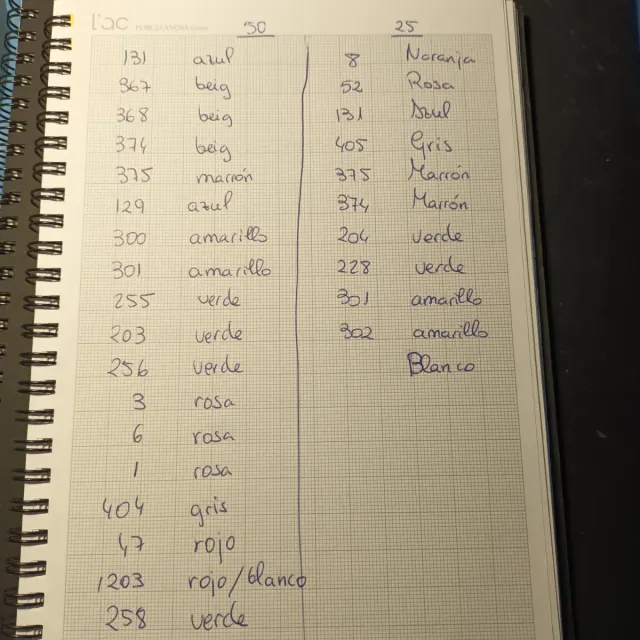 50
131 azul
367 beig
368 beig
374 beig
375 marrón
129 azul
300 amarillo
301 amarillo
255 verde
203 verde
256 verde
3 rosa
6 rosa
1 rosa
404 gris
47 rojo
1203 rojo/blanco
258 verde
25
8 Naranja
52 Rosa
131 Azul
405 Gris
375 Marrón
374 Marrón
204 verde
228 verde
301 amarillo
302 amarillo
Blanco